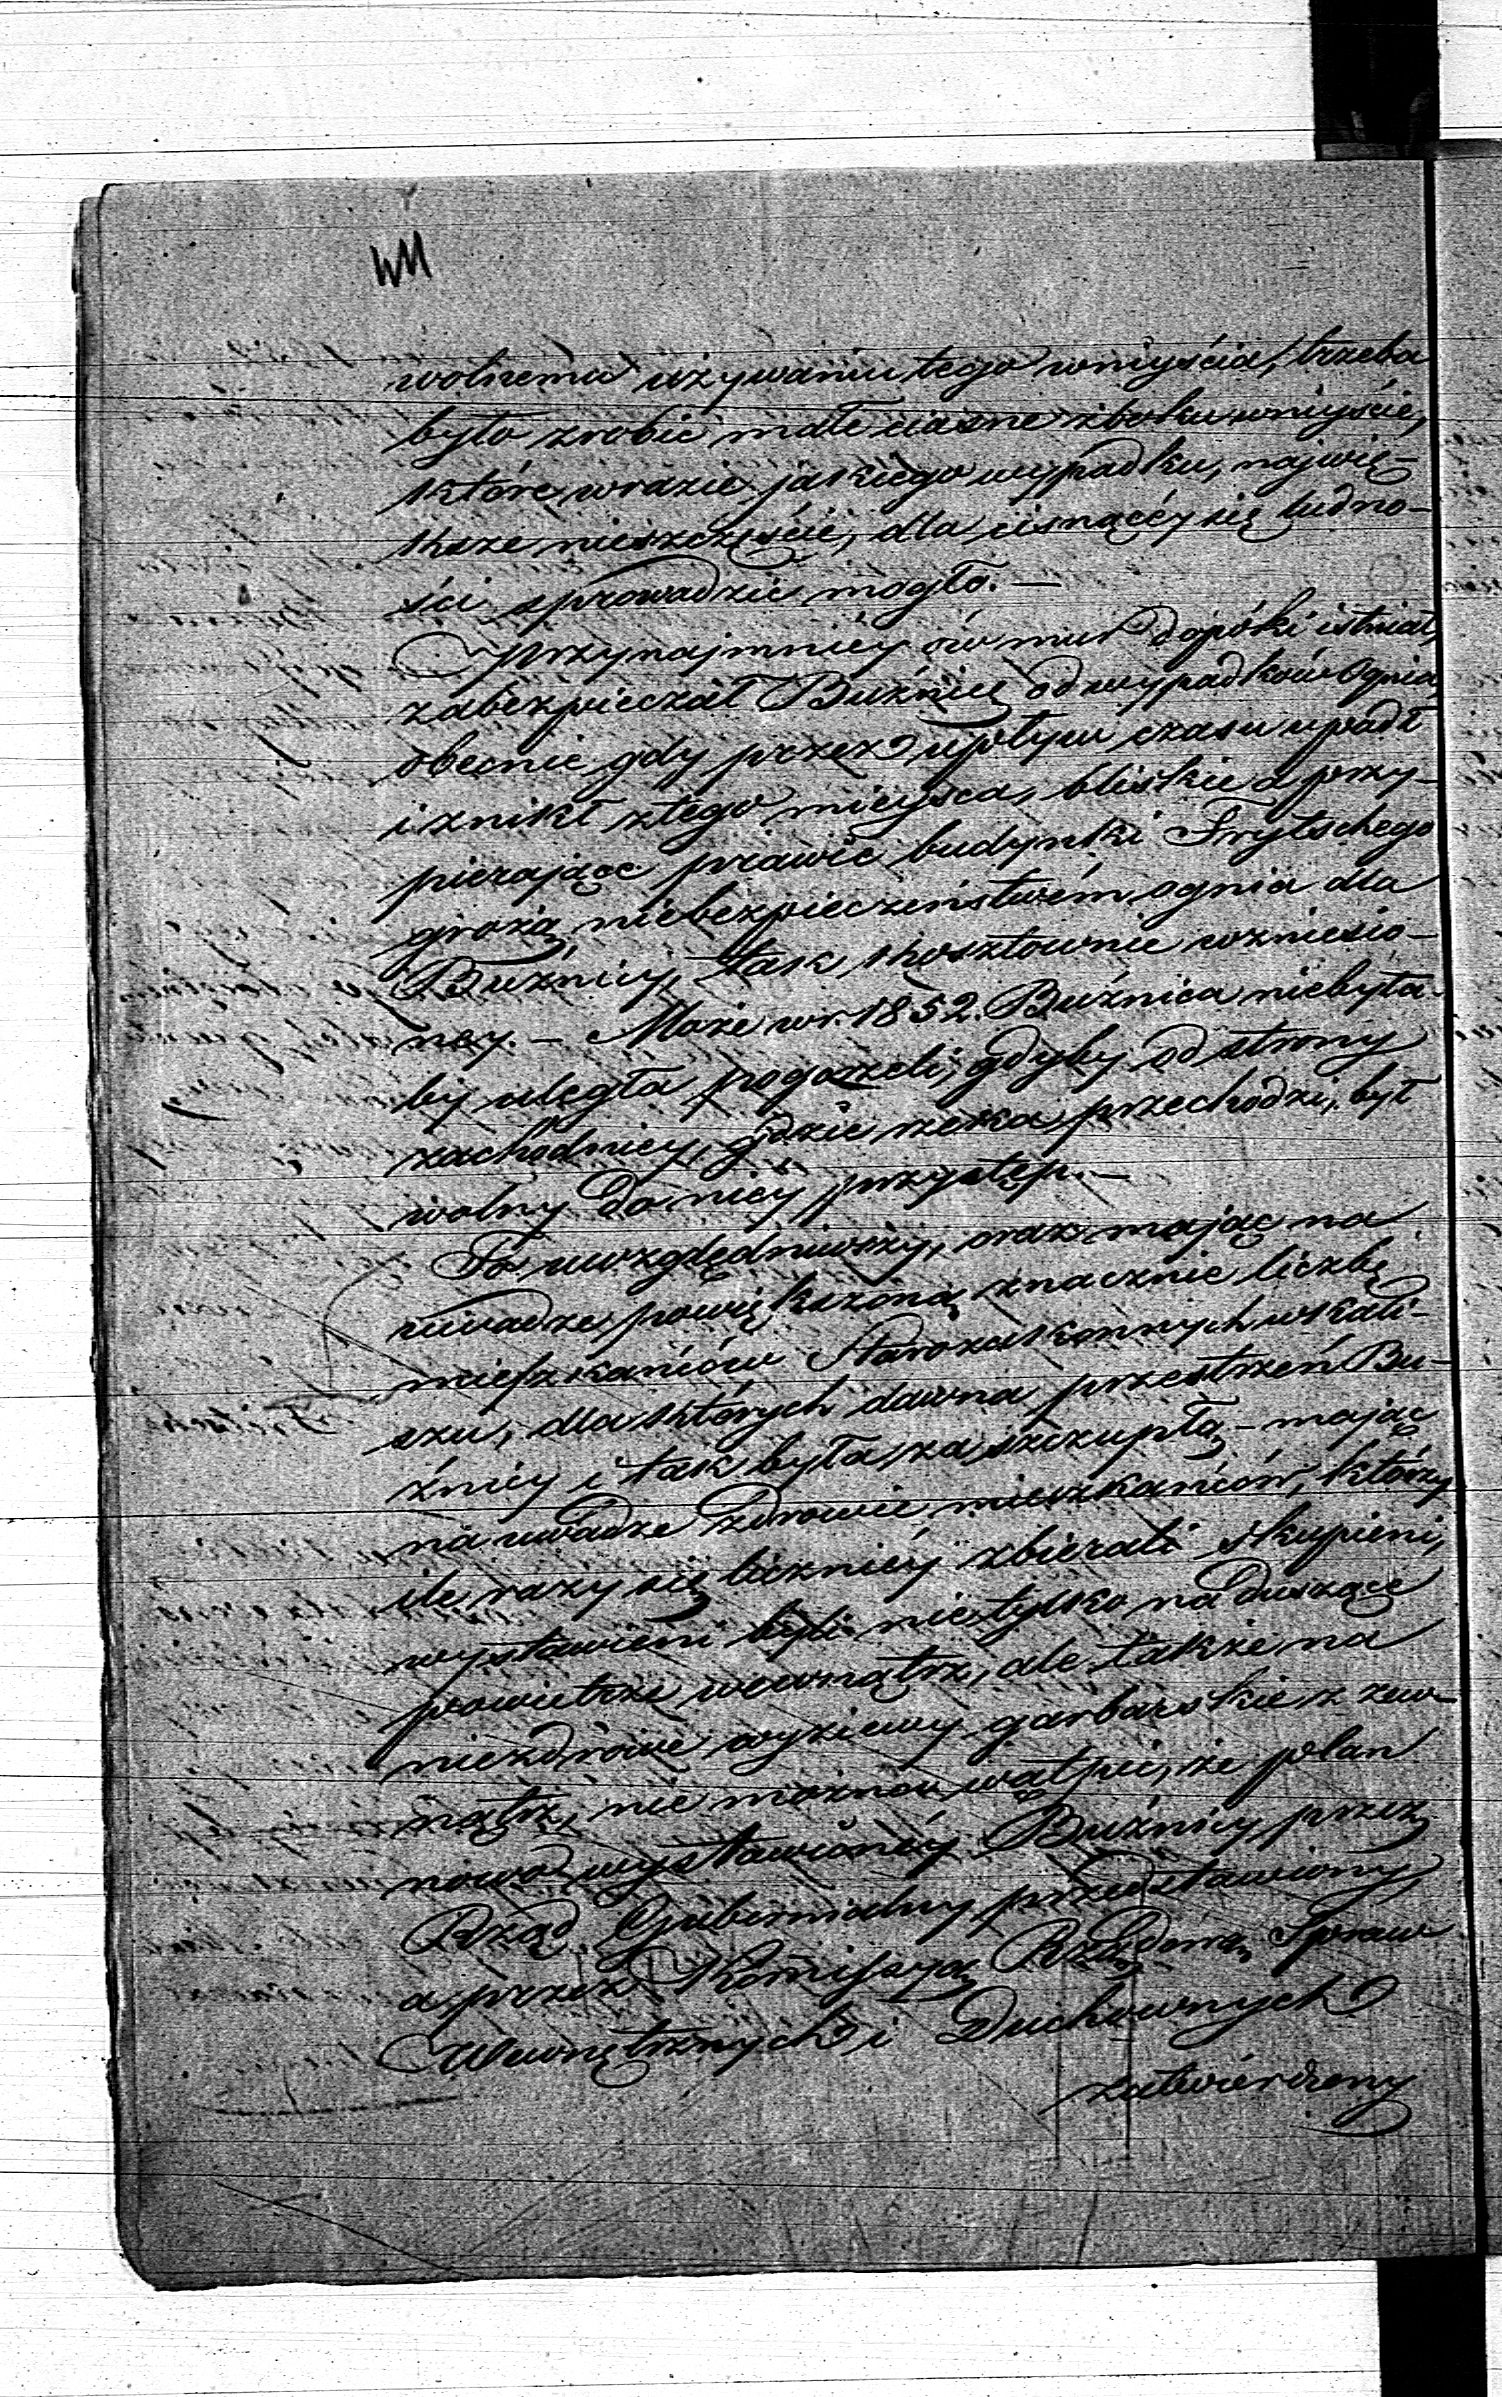 wolnemu używaniu tego wniyścia, trzeba
było zrobić małe ciasne zboku wniyście,
które, wrazie jakiego wypadku, najwię-
ksze nieszczęście, dla cisnącéy się ludno-
ści sprowadzić mogło. —
Przynajmniéy ów mur dopóki istniał,
zabezpieczał Buźnicę od wypadków Ognia,
obecnie gdy przez upływ czasu upadł
i znikł ztego mieysca, bliskie a przy-
pierające prawie budynki Frytschego
grożą niebezpieczeństwem ognia dla
Buźnicy, tak kosztownie wzniesio-
ney. — Może w r. 1852. Buźnica niebyła
by uległa pogorzeli, gdyby od strony
zachodniey, gdzie rzeka przechodzi, był
wolny do niéy przystęp. —
To uwzględniwszy, oraz mając na
uwadze powiększoną znacznie liczbę
mieszkańców Starozakonnych w Kali-
szu, dla których dawna przestrzeń Bu-
źnicy i tak była za szczupłą — mając
na uwadze zdrowie mieszkańców, którzy
ile razy się liczniéy zbierali skupieni,
wystawieni byli nietylko na duszące
powietrze wewnątrz, ale także na
niezdrowe wyziewy garbarskie z zew-
nątrz, nie można wątpić, że plan
nowo wystawionéy Buźnicy, przez
Rząd Gubernialny przedstawiony,
a przez Komissyą Rządową Spraw
Wewnętrznych i Duchownych
zatwierdzony